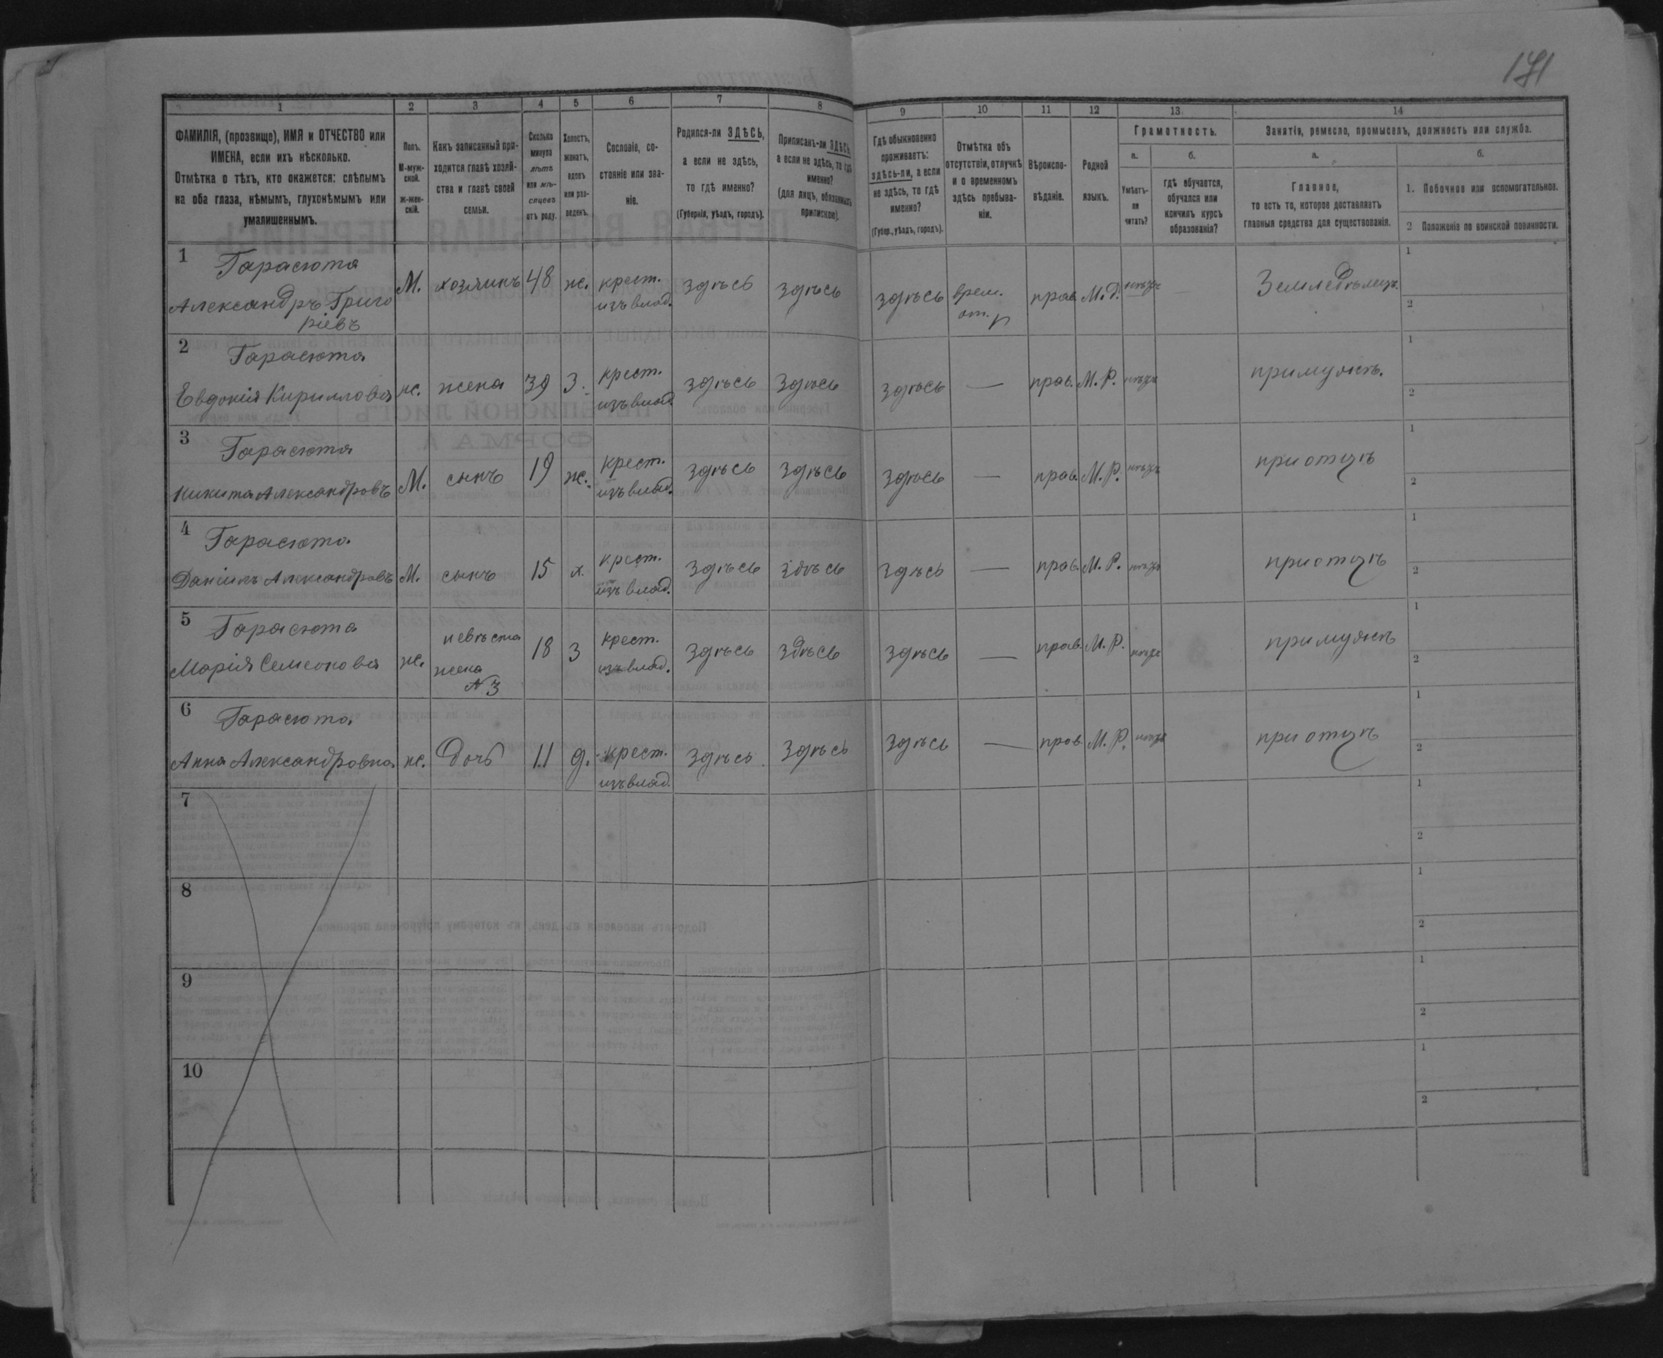 171
1
2
3
4
5
6
7
8
9
10
11
12
13.
14
ФАМИЛІЯ, (прозвище), ИМЯ и ОТЧЕСТВО или
ИМЕНА, если ихъ нѣсколько.
Отмѣтка о тѣхъ, кто окажется: слѣпымъ
на оба глаза, нѣмымъ, глухонѣмымъ или
умалишеннымъ.
Полъ.
М-муж-
ской.
Ж-жен-
скій.
Какъ записанный при-
ходится главѣ хозяй-
ства и главѣ своей
семьи.
Сколько
минуло
лѣтъ
или мѣ-
сяцевъ
отъ роду.
Холостъ,
женатъ,
вдовъ
или раз-
веденъ.
Сословіе, со-
стояніе или зва-
ніе.
Родился-ли ЗДѢСЬ,
а если не здѣсь,
то гдѣ именно?
(Губернія, уѣздъ, городъ).
Приписанъ-ли ЗДѢСЬ,
а если не здѣсь, то гдѣ
именно?
(для лицъ, обязанныхъ
припискою).
Гдѣ обыкновенно
проживаетъ:
здѣсь-ли, а если
не здѣсь, то гдѣ
именно?
(Губер., уѣздъ, городъ).
Отмѣтка объ
отсутствіи, отлучкѣ
и о временномъ
здѣсь пребыва-
ніи.
Вѣроиспо-
вѣданіе.
Родной
языкъ.
Грамотность.
а.
б.
Умѣетъ-
ли
читать?
гдѣ обучается,
обучался или
кончилъ курсъ
образованія?
Занятіе, ремесло, промыселъ, должность или служба.
а.
б.
Главное,
то есть то, которое доставляетъ
главныя средства для существованія.
1. Побочное или вспомогательное.
2 Положеніе по воинской повинности.
1 Гарасюта
Александръ Григо
ріевъ
М. хозяинъ 48 ж. крест.
изъ влад.
здѣсь здѣсь здѣсь врем.
от.
прав. М.Р. нѣтъ Земледѣлецъ 1
2
2 Гарасюта
Евдокія Кириллова ж. жена 39 З. крест.
изъ влад.
здѣсь здѣсь здѣсь — прав. М.Р. нѣтъ при мужѣ. 1
2
3 Гарасюта
Никита Александровъ М. сынъ 19 ж. крест.
изъ влад.
здѣсь здѣсь здѣсь — прав. М.Р. нѣтъ при отцѣ 1
2
4 Гарасюта
Даніилъ Александровъ М. сынъ 15 х. крест.
изъ влад.
здѣсь здѣсь здѣсь — прав. М.Р. нѣтъ при отцѣ 1
2
5 Гарасюта
Марія Семенова ж. невѣста
жена
№3
18 З крест.
изъ влад.
здѣсь здѣсь здѣсь — прав. М.Р. нѣтъ при мужѣ 1
2
6 Гарасюта
Анна Александровна ж. дочь 11 д. крест.
изъ влад.
здѣсь здѣсь здѣсь — прав М.Р. нѣтъ при отцѣ 1
2
7 1
2
8 1
2
9 1
2
10 1
2